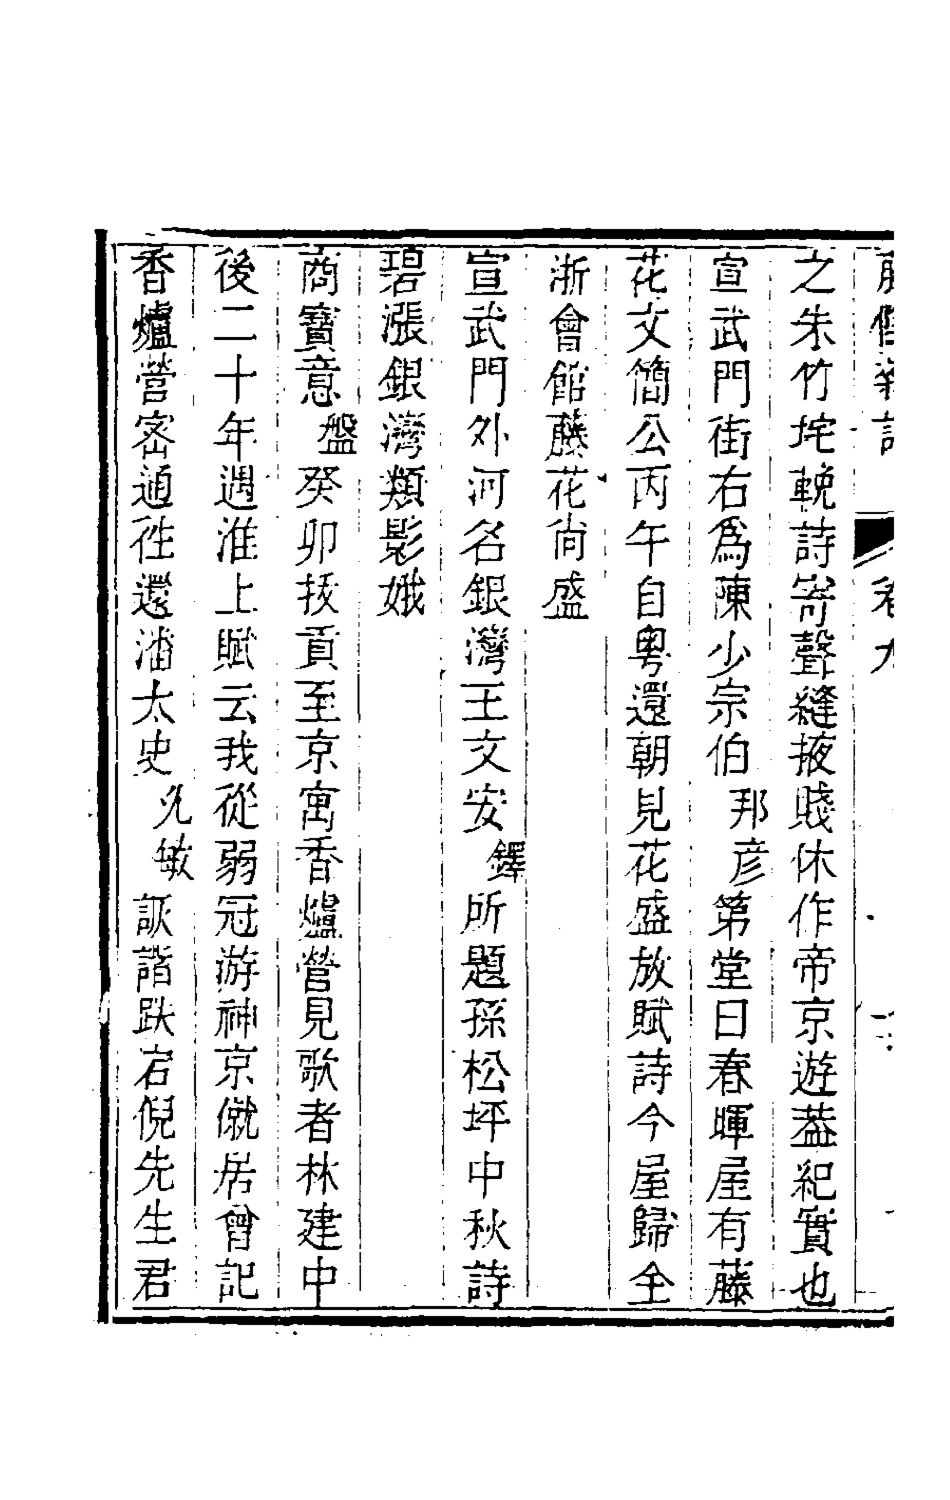 藤陰雜記 卷九
之朱竹垞輓詩寄聲縫掖賤休作帝京遊葢紀實也
宣武門街右爲陳少宗伯邦彦第堂曰春暉屋有藤
花文簡公丙午自粤還朝見花盛放賦詩今屋歸全
浙會館藤花尙盛
宣武門外河名銀灣王文安鐸所題孫松坪中秋詩
碧漲銀灣類影娥
商寶意盤癸卯拔貢至京寓香爐營見歌者林建中
後二十年遇淮上賦云我從弱冠游神京僦居曾記
香爐營宻通徃還潘太史允敏詼諧跌宕倪先生君